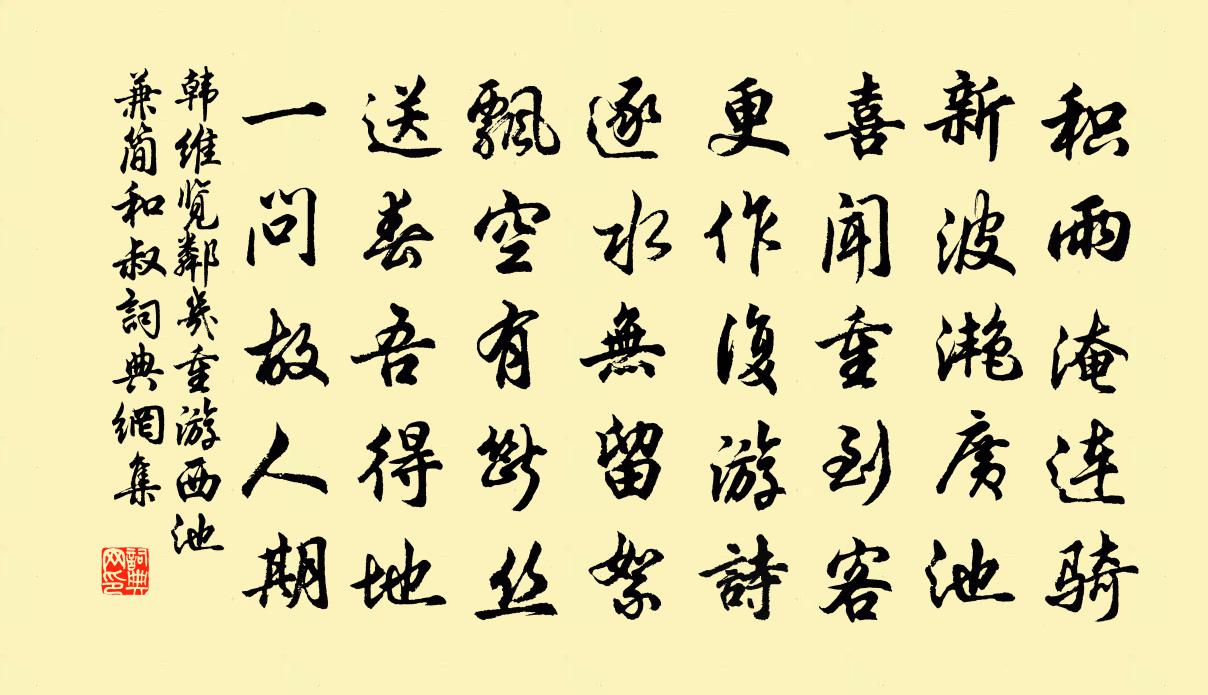 积雨淹连骑
新波滟广池
喜闻重到客
更作復游詩
逐水無留絮
飄空有断丝
送春吾得地
一问故人期
韩维览鄰幾重游西池
兼简和叔詞典網集
詞典网印